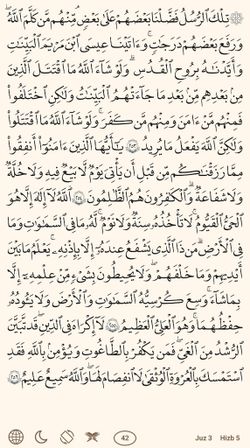 ۞ تِلْكَ ٱلرُّسُلُ فَضَّلْنَا بَعْضَهُمْ عَلَىٰ بَعْضٍۘ مِّنْهُم مَّن كَلَّمَ ٱللَّهُۖ
وَرَفَعَ بَعْضَهُمْ دَرَجَٰتٍۚ وَءَاتَيْنَا عِيسَى ٱبْنَ مَرْيَمَ ٱلْبَيِّنَٰتِ
وَأَيَّدْنَٰهُ بِرُوحِ ٱلْقُدُسِۗ وَلَوْ شَآءَ ٱللَّهُ مَا ٱقْتَتَلَ ٱلَّذِينَ
مِنۢ بَعْدِهِم مِّنۢ بَعْدِ مَا جَآءَتْهُمُ ٱلْبَيِّنَٰتُ وَلَٰكِنِ ٱخْتَلَفُوا۟
فَمِنْهُم مَّنْ ءَامَنَ وَمِنْهُم مَّن كَفَرَۚ وَلَوْ شَآءَ ٱللَّهُ مَا ٱقْتَتَلُوا۟
وَلَٰكِنَّ ٱللَّهَ يَفْعَلُ مَا يُرِيدُ ٢٥٣ يَٰٓأَيُّهَا ٱلَّذِينَ ءَامَنُوٓا۟ أَنفِقُوا۟
مِمَّا رَزَقْنَٰكُم مِّن قَبْلِ أَن يَأْتِىَ يَوْمٌ لَّا بَيْعٌ فِيهِ وَلَا خُلَّةٌ
وَلَا شَفَٰعَةٌۗ وَٱلْكَٰفِرُونَ هُمُ ٱلظَّٰلِمُونَ ٢٥٤ ٱللَّهُ لَآ إِلَٰهَ إِلَّا هُوَ
ٱلْحَىُّ ٱلْقَيُّومُۚ لَا تَأْخُذُهُۥ سِنَةٌ وَلَا نَوْمٌۚ لَّهُۥ مَا فِى ٱلسَّمَٰوَٰتِ وَمَا
فِى ٱلْأَرْضِۗ مَن ذَا ٱلَّذِى يَشْفَعُ عِندَهُۥٓ إِلَّا بِإِذْنِهِۦۚ يَعْلَمُ مَا بَيْنَ
أَيْدِيهِمْ وَمَا خَلْفَهُمْۖ وَلَا يُحِيطُونَ بِشَىْءٍ مِّنْ عِلْمِهِۦٓ إِلَّا
بِمَا شَآءَۚ وَسِعَ كُرْسِيُّهُ ٱلسَّمَٰوَٰتِ وَٱلْأَرْضَۖ وَلَا يَـُٔودُهُۥ
حِفْظُهُمَاۚ وَهُوَ ٱلْعَلِىُّ ٱلْعَظِيمُ ٢٥٥ لَآ إِكْرَاهَ فِى ٱلدِّينِۖ قَد تَّبَيَّنَ
ٱلرُّشْدُ مِنَ ٱلْغَىِّۚ فَمَن يَكْفُرْ بِٱلطَّٰغُوتِ وَيُؤْمِنۢ بِٱللَّهِ فَقَدِ
ٱسْتَمْسَكَ بِٱلْعُرْوَةِ ٱلْوُثْقَىٰ لَا ٱنفِصَامَ لَهَاۗ وَٱللَّهُ سَمِيعٌ عَلِيمٌ ٢٥٦
42 Juz 3 Hizb 5